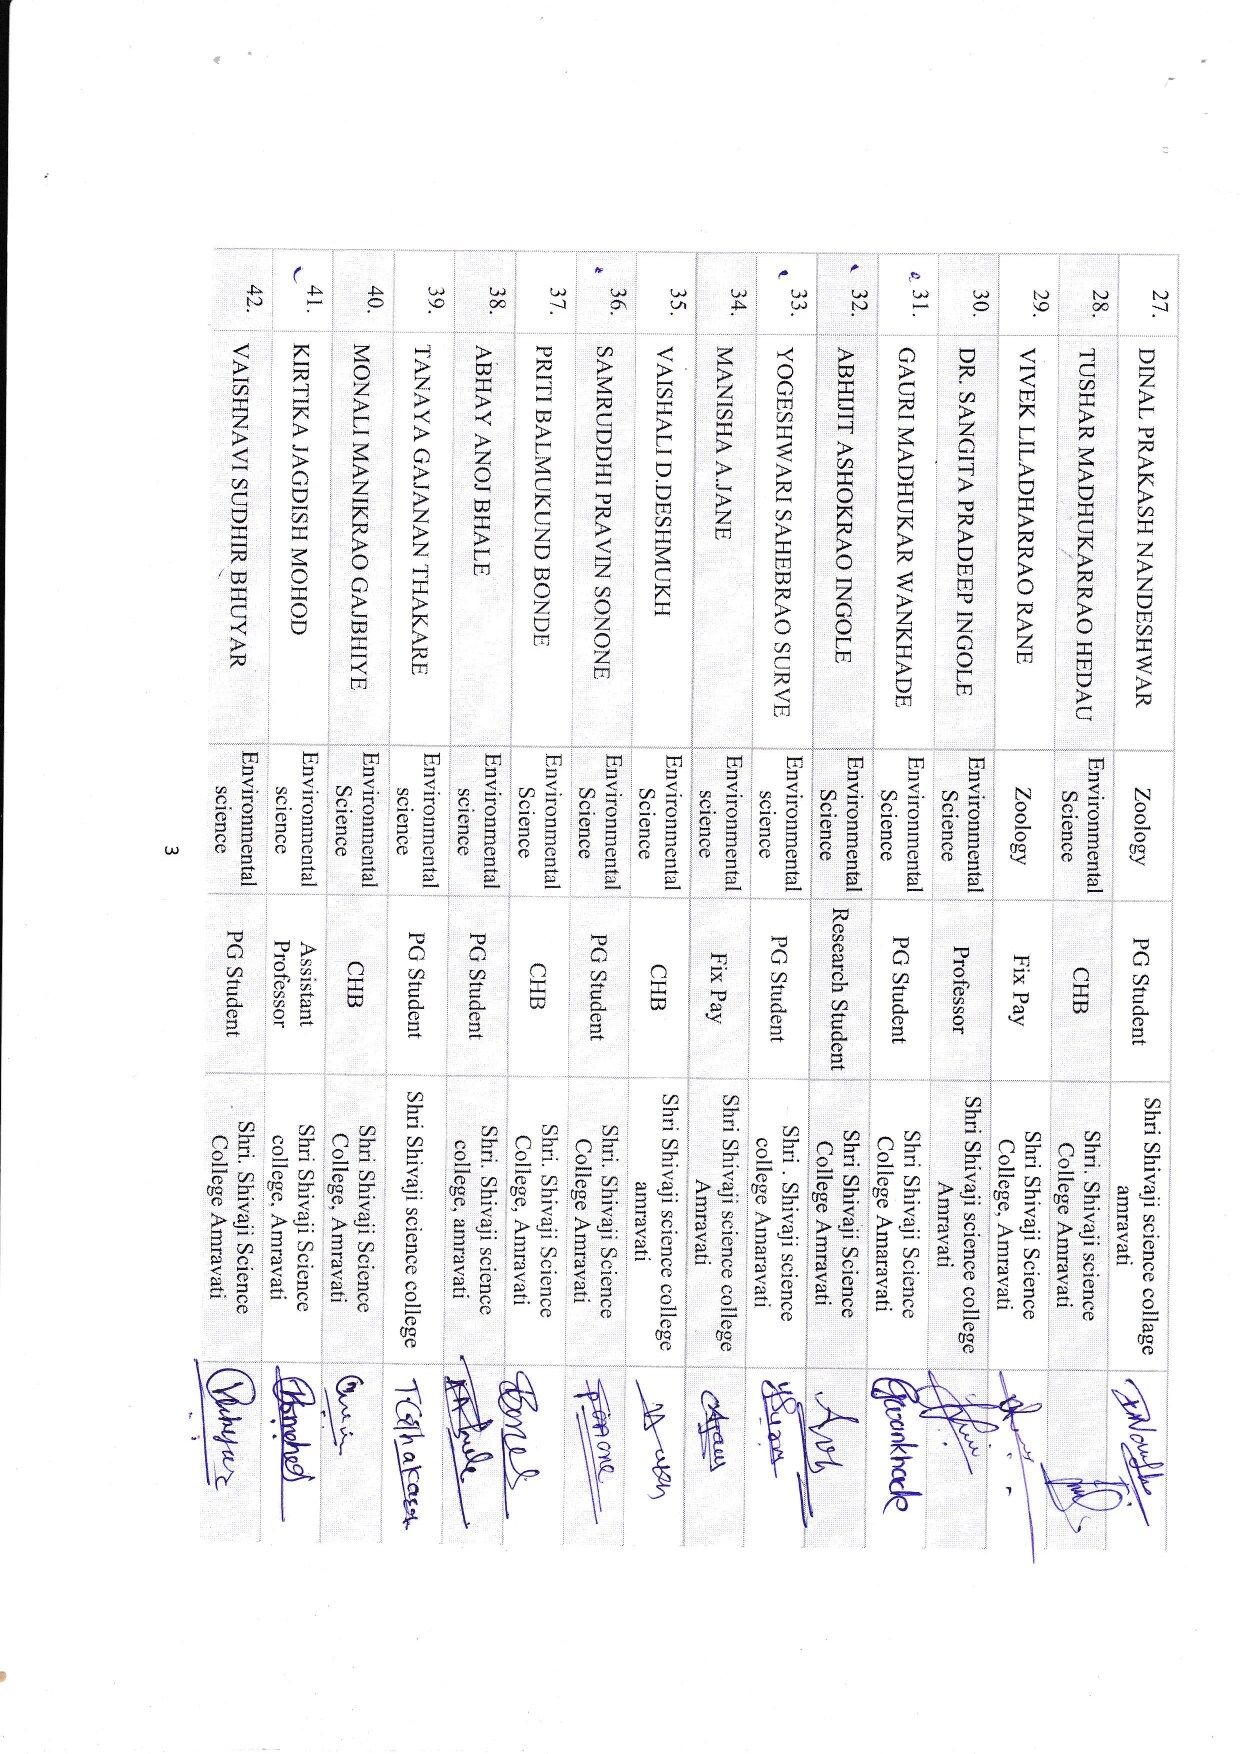 27. DINAL PRAKASH NANDESHWAR Zoology PG Student Shri Shivaji science collage
amravati
28. TUSHAR MADHUKARRAO HEDAU Environmental
Science CHB Shri. Shivaji science
College Amravati
29. VIVEK LILADHARRAO RANE Zoology Fix Pay Shri Shivaji Science
College, Amravati
30. DR. SANGITA PRADEEP INGOLE Environmental
Science Professor Shri Shivaji science college
Amravati
31. GAURI MADHUKAR WANKHADE Environmental
Science PG Student Shri Shivaji Science
College Amaravati
Gwankhade
32. ABHIJIT ASHOKRAO INGOLE Environmental
Science Research Student Shri Shivaji Science
College Amravati
33. YOGESHWARI SAHEBRAO SURVE Environmental
science PG Student Shri . Shivaji science
college Amaravati
34. MANISHA A.JANE Environmental
science Fix Pay Shri Shivaji science college
Amravati
35. VAISHALI D.DESHMUKH Environmental
Science CHB Shri Shivaji science college
amravati
36. SAMRUDDHI PRAVIN SONONE Environmental
Science PG Student Shri. Shivaji Science
College Amravati
37. PRITI BALMUKUND BONDE Environmental
Science CHB Shri. Shivaji Science
College, Amravati
38. ABHAY ANOJ BHALE Environmental
science PG Student Shri. Shivaji science
college, amravati
39. TANAYA GAJANAN THAKARE Environmental
science PG Student Shri Shivaji science college
TGThakare
40. MONALI MANIKRAO GAJBHIYE Environmental
Science CHB Shri Shivaji Science
College, Amravati
41. KIRTIKA JAGDISH MOHOD Environmental
science Assistant
Professor Shri Shivaji Science
college, Amravati
42. VAISHNAVI SUDHIR BHUYAR Environmental
science PG Student Shri. Shivaji Science
College Amravati
3